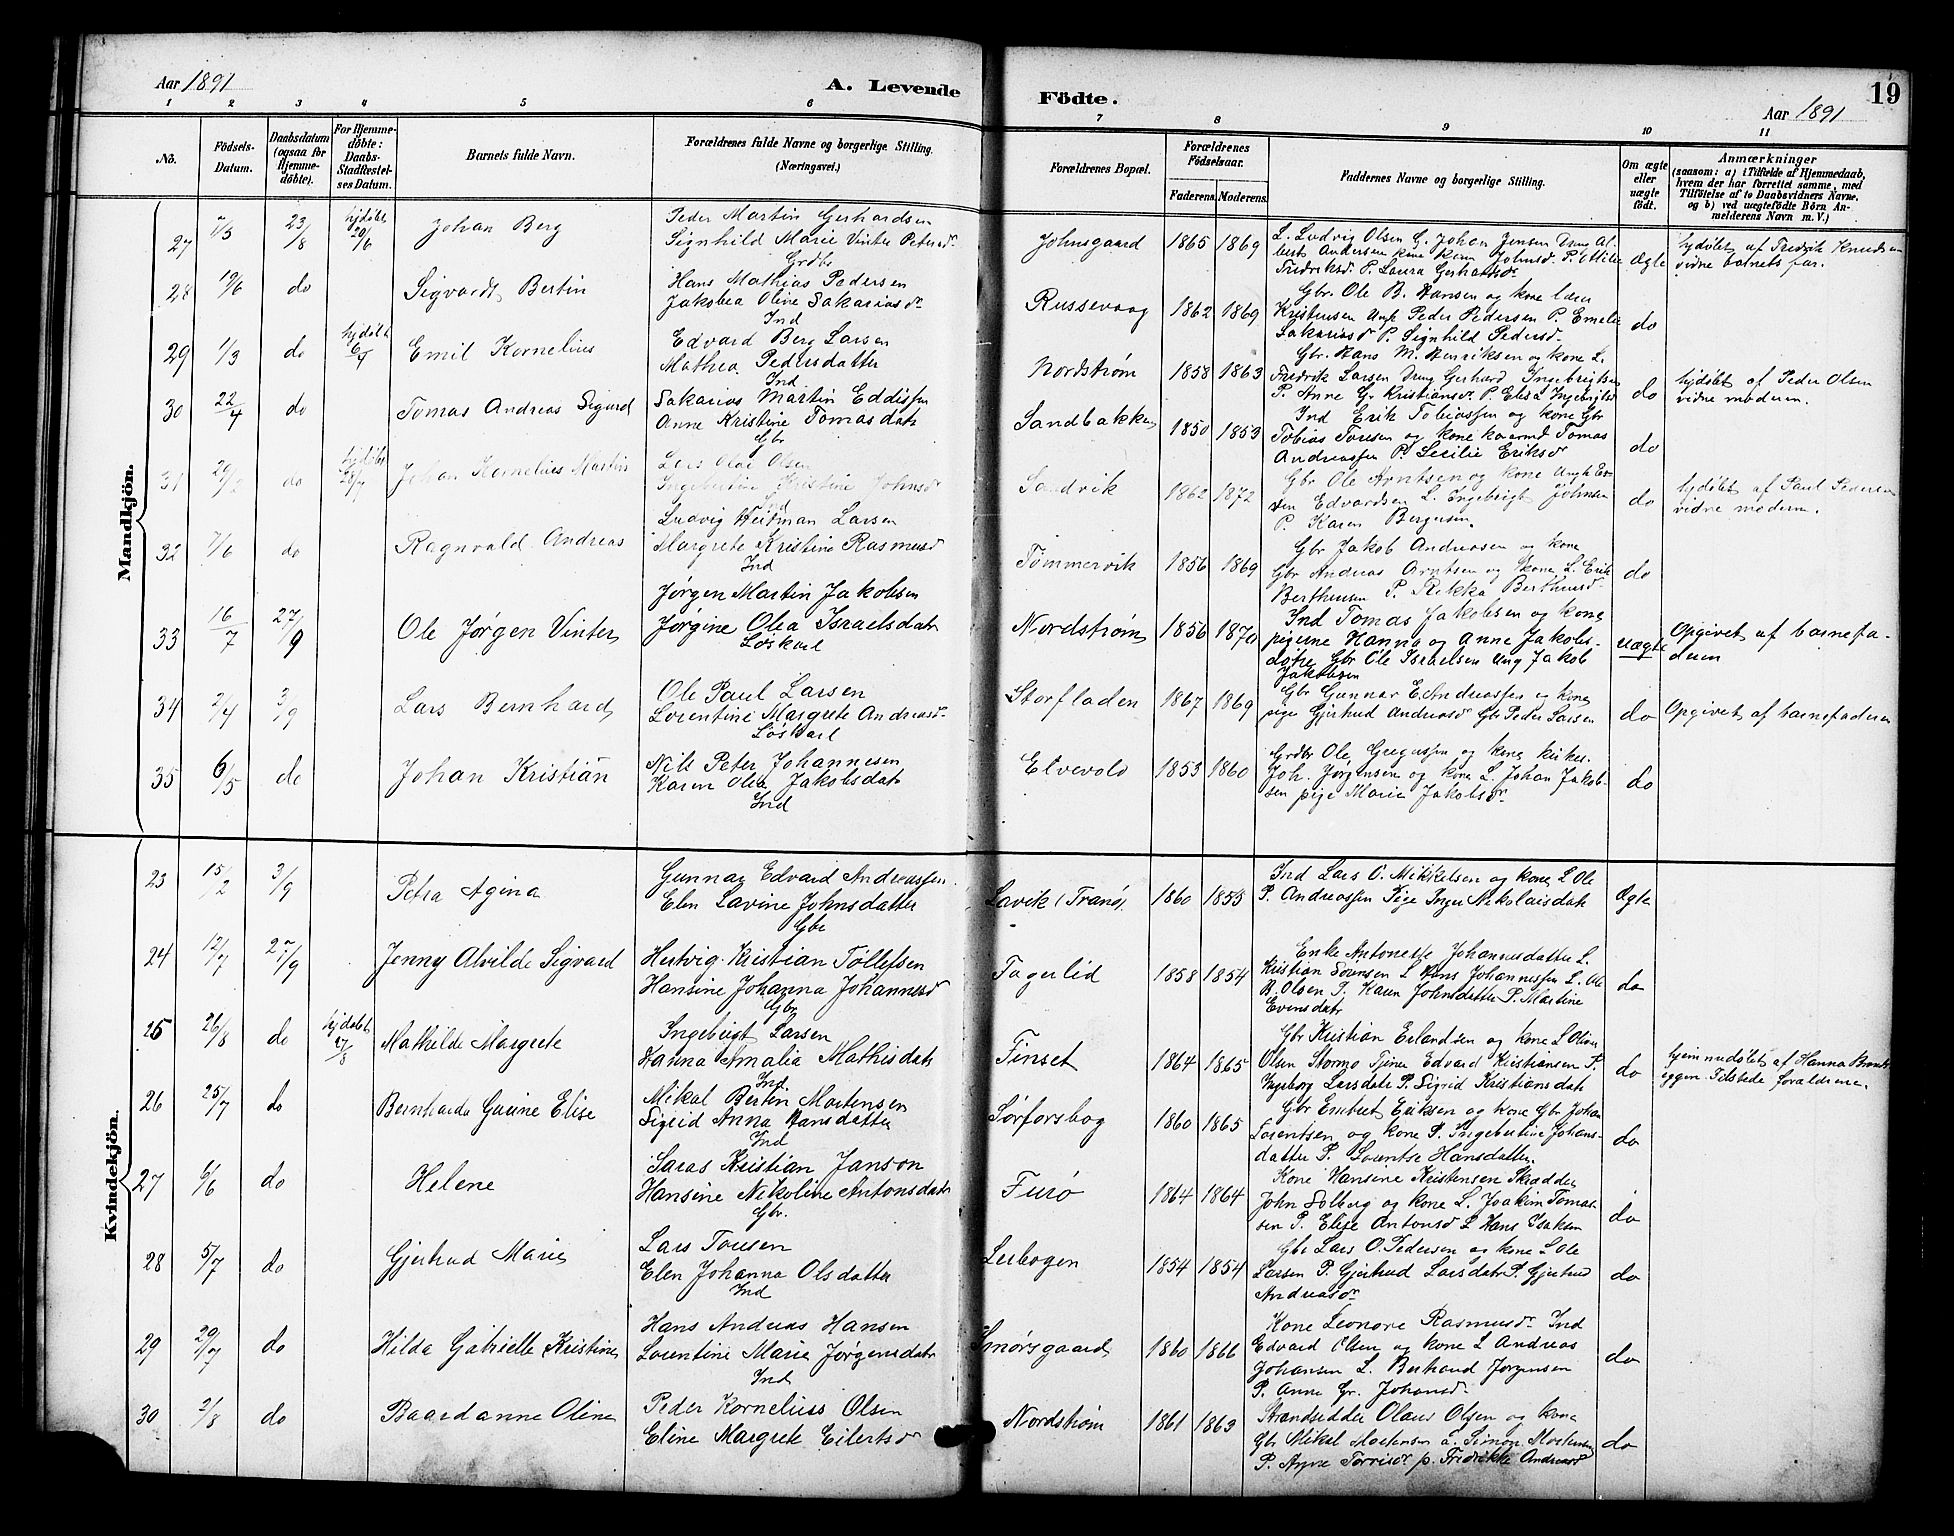 Aar 1891
A. Levende
Födte.
19
Aar 1891
1 2 3 4 5 6 7 8 9 10 11
No.
Födsels-Datum.
Daabsdatum (ogsaa for Hjemme-döbte).
For Hjemme-döbte: Daabs-Stadfæstel-ses Datum.
Barnets fulde Navn.
Forældrenes fulde Navne og borgerlige Stilling. (Næringsvei.)
Forældrenes Bopæl.
Forældrenes Födselsaar.
Faderens. Moderens.
Faddernes Navne og borgerlige Stilling.
Om ægte eller uægte födt.
Anmærkninger
(saasom: a) i Tilfælde af Hjemmedaab, hvem der har forrettet samme, med Tilföielse af to Daabsvidners Navne, og b) ved uægtefödte Börn An-melderens Navn m. V.)
Mandkjön.
27 1/3 23/8 hjdøbt 20/6 Johan Berg
Peder Martin Gerhardsen
Signhild Marie Vinter Petersdr
Grdbr
Johnsgaard 1865 1869
L. Ludvig Olsen G. Johan Jensen Dreng Al-
berts Andersen kone Karen Johnsd. P. Ottilie
Fredriksd. P. Laura Gerhardsdr
Ægte
hjdøbt af Fredrik Knudsen
vidne barnets far.
28 19/6 do Sigvardt Bertin
Hans Mathias Pedersen
Jakobea Oline Sakariasdr
Ind
Russevaag 1862 1869
Gbr. Ole B. Hansen og kone
Kristensen Ungk Peder Pedersen P. Emelie
Sakariasd P. Signhild Pedersd.
do
29 1/3 do hjdøbt Emil Kornelius
Edvard Berg Larsen
Mathea Pedersdatter
Ind
Nordstrøm 1858 1863
Gbr. Hans M. Henriksen og kone L.
Fredrik Larsen Dreng Gerhard Ingebrigtsen
P. Anne G. Kristiansdr P. Elisa Ingebrigtsd
do
hjdøbt af Peder Olsen
vidne moderen.
30 22/4 do Tomas Andreas Sigurd
Sakarias Martin Eddissen
Anne Kristine Tomasdatr
Gbr
Sandbakken 1850 1853
Ind Erik Tobiassen og kone Gbr
Tobias Tomesen og kone Tomas
Andreassen P. Secilie Eriksdr
do
31 29/2 do hjdøbt Johan Kornelius Martin
Lars Olai Olsen
Ingebertine Kristine Johnsdr
Ind
Sandvik 1862 1872
Gbr Ole Arntsen og kone Ungk
Edvardsen L. Ingebrigt Johnsen
P. Karen Bergersen.
do
hjdøbt af Paul Pedersen
vidne moderen.
32 7/6 do Ragnvald Andreas
Ludvig Heitman Larsen
Margrete Kristine Rasmusd
Ind
Tømmervik 1856 1869
Gbr Jakob Andreasen og kone
Gbr Andreas Arntsen og kone L. Erik
Berthusen P. Rikka Berthusd.
do
33 16/7 27/9 Ole Jørgen Vinter
Jørgen Martin Jakobsen
Jørgine Olea Israelsdatr
Løskarl
Nordstrøm 1856 1870
Ind Tomas Jakobsen og kone
pigerne Hanna og Anne Jakobs-
døtre Gbr Ole Israelsen Ung Jakob
Jakobsen
uægte
Opgivet af barnefa-
deren
34 2/4 3/9 Lars Bernhard
Ole Paul Larsen
Lorentine Margrete Andreasd.
Løskarl
Storfladen 1867 1869
Gbr Gunnar E. Andreassen og kone
pige Gjertrud Andreasdr Gbr Peder Larsen
do
Opgivet af barnefaderen
35 6/5 do Johan Kristian
Nils Peter Johannesen
Karen Olea Jakobsdatr
Ind
Elvevold 1853 1860
Grdbr Ole Gregussen og kone kirkes.
Joh. Jørgensen og kone L. Johan Jakob-
sen pige Marie Jakobsdr
do
Kvindekjön.
23 15/2 3/9 Petra Agina
Gunnar Edvard Andreassen
Elen Lavine Johnsdatter
Gbr
Lavik (Tranø) 1860 1855
Ind Lars O. Mikkelsen og kone L Ole
P. Andreassen Pige Inger Nikolaisdatr
Ægte
24 12/7 27/9 Jenny Alvilde Sigvard
Hertvig Kristian Tollefsen
Hansine Johanna Johannesd
Gbr
Fagerlid 1858 1854
Enke Antonette Johannesdatter L.
Kristian Sørensen L Hans Johannessen L. Ole
B. Olsen P. Karen Johnsdatter P. Martine
Evensdatr
do
25 26/8 do hjdøbt 27/8 Mathilde Margrete
Ingebrigt Larsen
Hanna Amalia Mathisdatr
Ind
Finset 1864 1865
Gbr Kristian Erlandsen og kone L Oliver
Olsen Stormo Tjener Edvard Kristiansen P.
Ingeborg Larsdatr P. Sigrid Kristiansdatr
do
hjemmedøbt af Hanna Brandt-
eggen. Tilstede forældrene.
26 25/7 do Bernharda Gurine Elise
Mikal Berten Mortensen
Sigrid Anna Hansdatter
Ind
Sørforsbog 1860 1865
Gbr Embret Eriksen og kone Gbr Johan
Lorentsen og kone P. Ingebertine Johans-
datter P. Lorentse Hansdatter.
do
27 6/6 do Helene
Saras Kristian Janson
Hansine Nikoline Antonsdatr
Gbr.
Furø 1864 1864
Kone Hansine Kristensen Skrædder
John Solberg og kone L. Joakim Tomas-
sen P. Elise Antonsd L Hans Isaksen
do
28 5/7 do Gjertrud Marie
Lars Tousen
Elen Johanna Olsdatter
Ind
Leibogen 1854 1854
Gbr Lars O. Pedersen og kone L Ole
Larsen P. Gjertrud Larsdatr P. Gjertrud
Andreasdr
do
29 29/7 do Hilda Gabrielle Kristine
Hans Andreas Hansen
Lorentine Marie Jørgensdatr
Ind
Smørsgaard 1860 1866
Kone Leonore Rasmusdr Ind
Edvard Olsen og kone L Andreas
Johansen L. Bertrand Jørgensen
P. Anne Gr. Johansd.
do
30 2/8 do Baardanne Oline
Peder Kornelius Olsen
Eline Margrete Eilertsdr
Nordstrøm 1861 1863
Strandsidder Olaus Olsen og kone
Gbr Mikal Mortensen L. Simon Mortensen
P. Anne Torrisdr p. Fredrikke Andreasdr
do